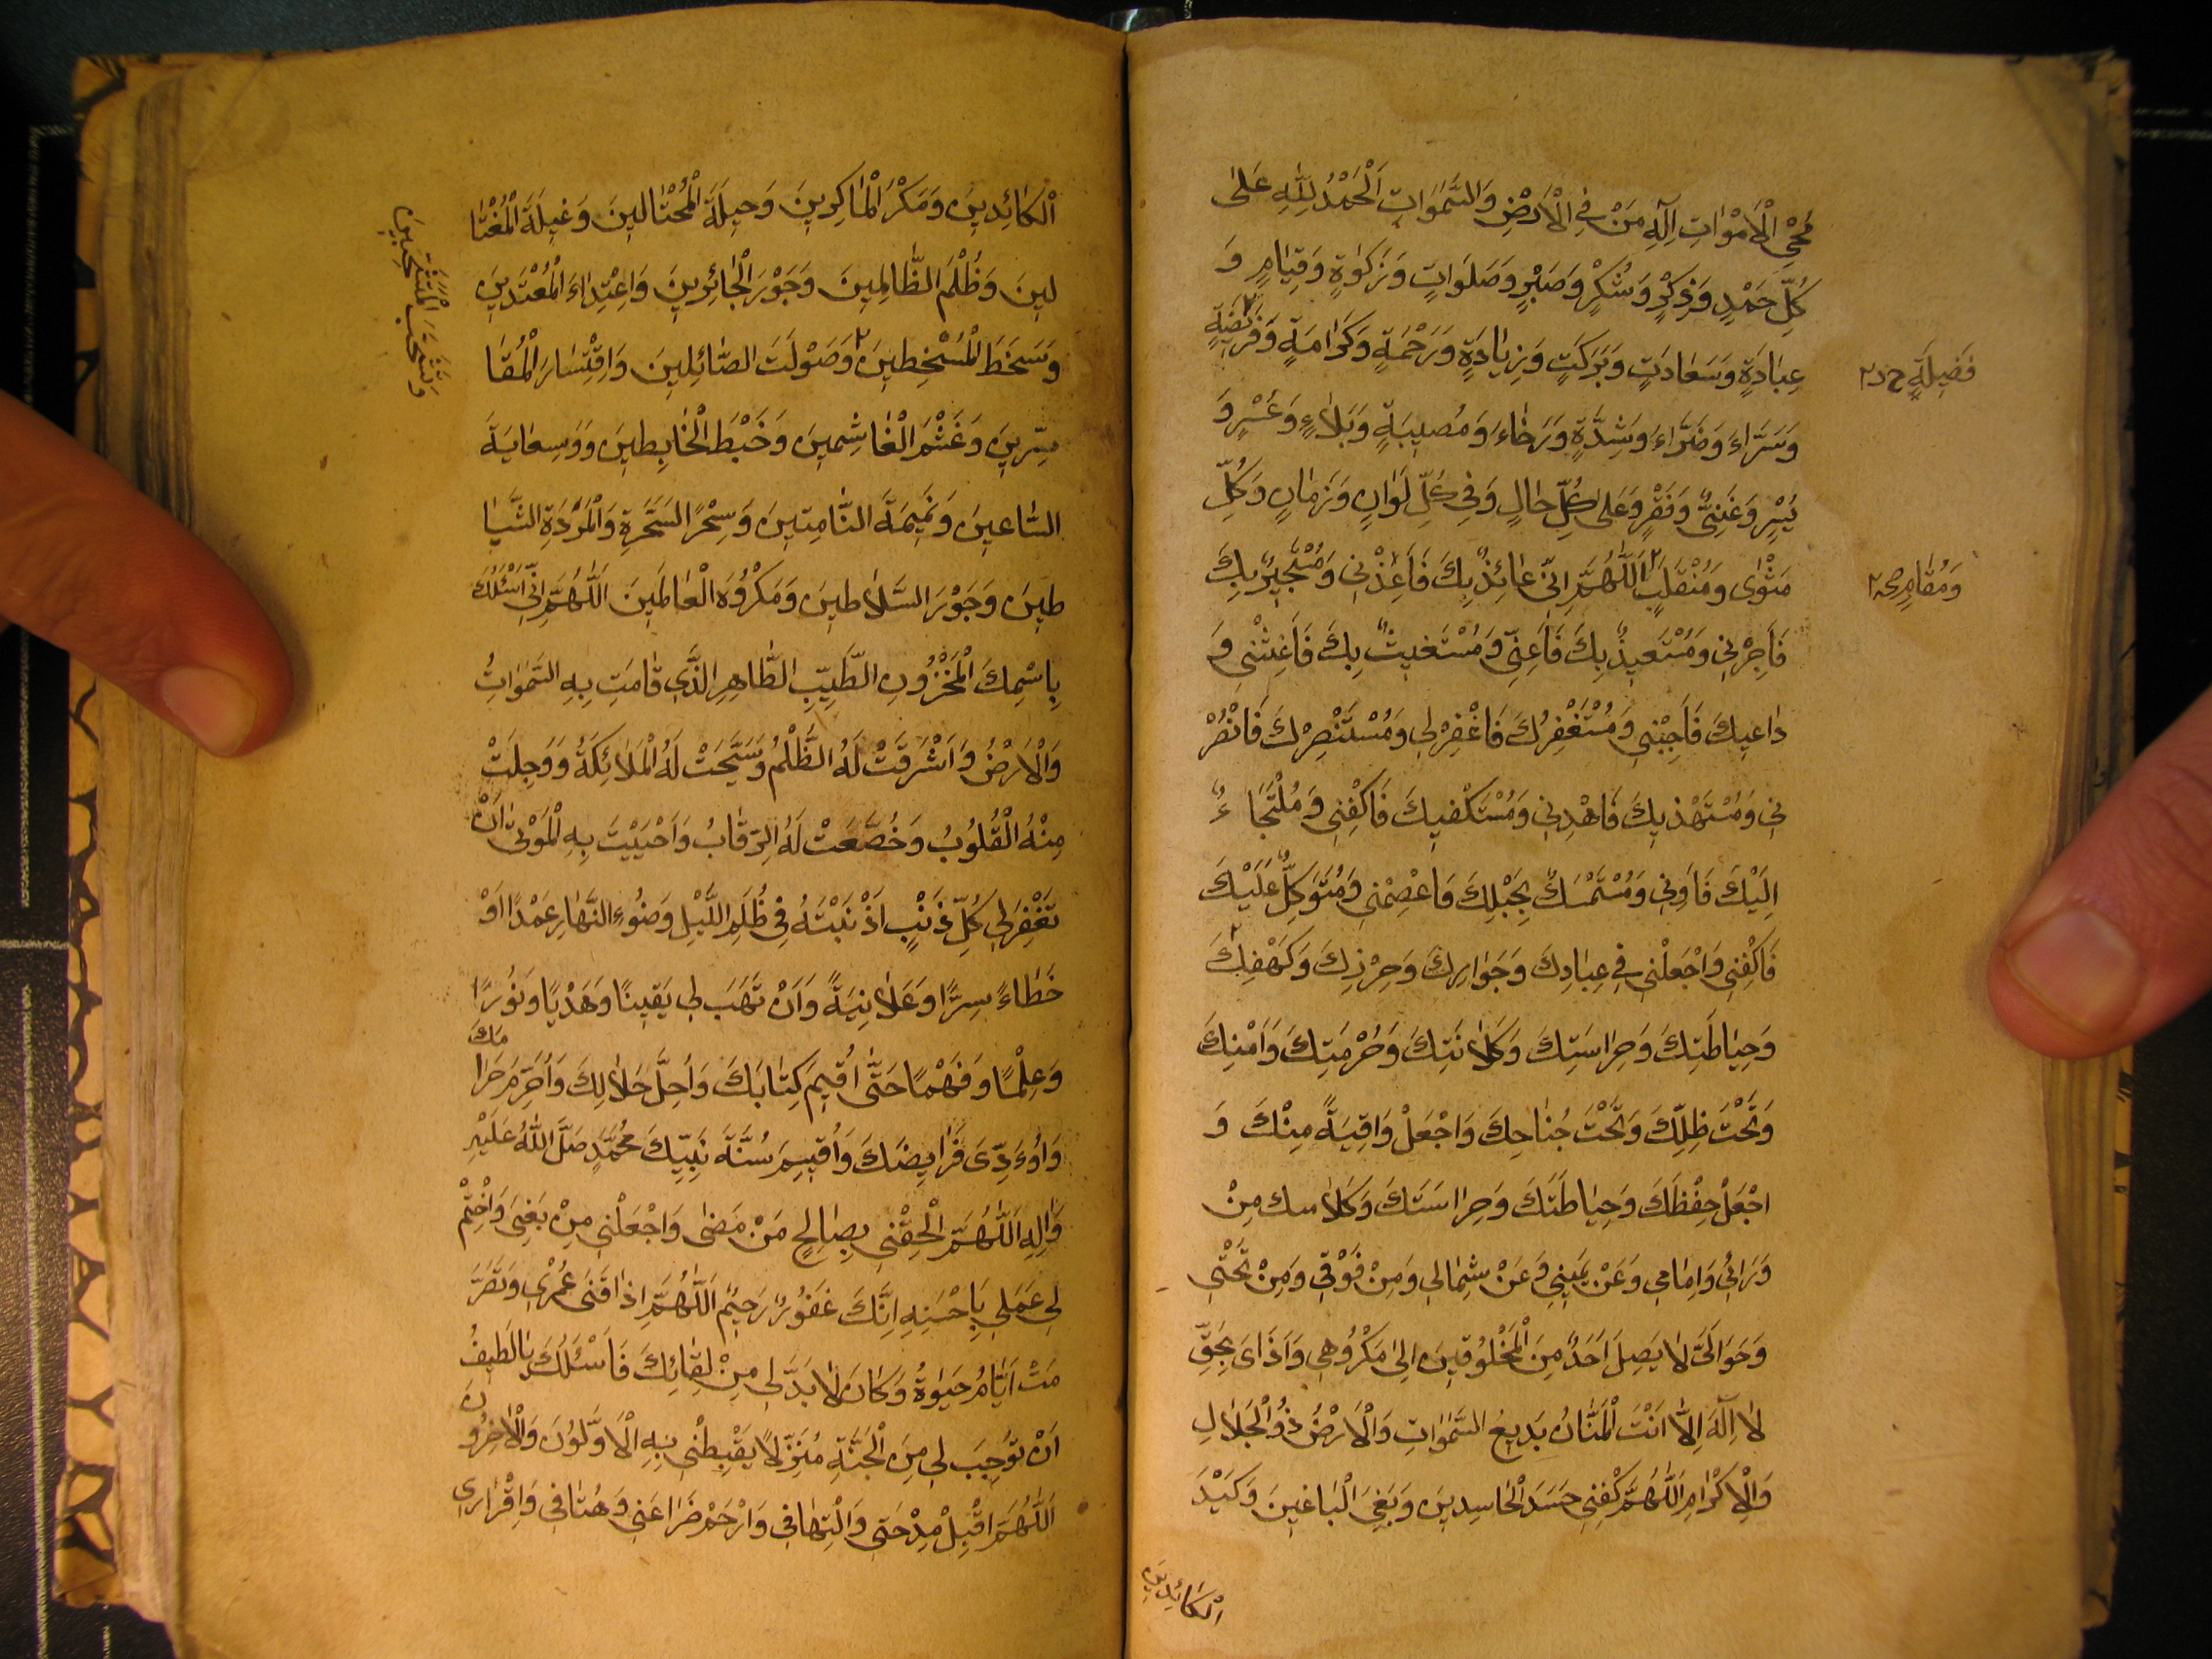 مُحْيِ الْاَمْوٰاتِ اِلٰهِ مَنْ فِي الْاَرْضِ وَالسَّمٰوَاتِ اَلْحَمْدُ لِلّٰهِ عَلٰى
كُلِّ حَمْدٍ وَذِكْرٍ وَشُكْرٍ وَصَبْرٍ وَصَلَوٰاتٍ وَزَكٰوةٍ وَقِيٰامٍ وَ
عِبٰادَةٍ وَسَعٰادَتٍ وَبَرَكَتٍ وَزِيٰادَةٍ وَرَحْمَةٍ وَكَرٰامَةٍ وَفَرِيضَةٍ
فَضِيلَةٍ خ د ٢
وَسَرّٰاءَ وَضَرّٰاءَ وَشِدَّةٍ وَرَخٰاءَ وَمُصِيبَةٍ وَبَلٰاءٍ وَعُسْرٍ وَ
يُسْرٍ وَغَنِىٍّ وَفَقْرٍ وَعَلٰى كُلِّ حٰالٍ وَفِى كُلِّ لَوٰانٍ وَزَمٰانٍ وَكُلِّ
مَثْوٰى وَمُنْقَلَبٍ اَللّٰهُمَّ اِنّى عٰائِذٌ بِكَ فَاَعِذْنِى وَمُسْتَجِيرٌ بِكَ
وَمُقٰامٍ صح ٢
فَاَجِرْنِى وَمُسْتَعِيذٌ بِكَ فَاَعِنِّى وَمُسْتَغِيثٌ بِكَ فَاَغِثْنِى وَ
دٰاعِيكَ فَاَجِبْنِى وَمُسْتَغْفِرُكَ فَاغْفِرْلِى وَمُسْتَنْصِرُكَ فَانْصُرْ
نِى وَمُسْتَهْدِيكَ فَاهْدِنِى وَمُسْتَكْفِيكَ فَاكْفِنِى وَمُلْتَجَاءٌ
اِلَيْكَ فَاٰوِنِى وَمُسْتَمْسِكٌ بِحَبْلِكَ فَاعْصِمْنِى وَمُتَوَكِّلٌ عَلَيْكَ
فَاكْفِنِى وَاجْعَلْنِى فِى عِبٰادِكَ وَجَوٰارِكَ وَحِرْزِكَ وَكَهْفِكَ
وَحِيٰاطَتِكَ وَحِرٰاسَتِكَ وَكَلٰائَتِكَ وَحُرْمَتِكَ وَاَمْنِكَ
وَتَحْتَ ظِلِّكَ وَتَحْتَ جُنٰاحِكَ وَاجْعَلْ وَاقِيَةً مِنْكَ وَ
اجْعَلْ حِفْظَكَ وَحِيٰاطَتَكَ وَحِرٰاسَتَكَ وَكَلاٰ مِنْ
وَرٰائِى وَاِمٰامِى وَعَنْ يَمِينِى وَعَنْ شِمٰالِى وَمِنْ فَوْقِى وَمِنْ تَحْتِى
وَحَوٰالَىَّ لاٰ يَصِلَ اَحَدٌ مِنَ الْمَخْلُوقِينَ اِلىٰ مَكْرُوهِى وَاَذٰاىَ بِحَقِّ
لاٰ اِلٰهَ اِلّٰا اَنْتَ الْمَنّٰانُ بَدِيعُ السَّمٰوٰاتِ وَالْاَرْضُ ذُوالْجَلٰالِ
وَالْاِكْرٰامِ اَللّٰهُمَّ كْفِنِى حَسَدَ الْحٰاسِدِينَ وَبَغِىَ الْبٰاغِينَ وَكَيْدَ
الْكٰائِدِينَ
الْكٰائِدِينَ وَمَكْرَ الْمٰاكِرِينَ وَحِيلَةَ الْمُحْتٰالِينَ وَغِيلَةَ الْمُغْتٰا
لِينَ وَظُلْمَ الظّٰالِمِينَ وَجَوْرَ الْجٰائِرِينَ وَاعْتِدٰاءَ الْمُعْتَدِينَ
وَسَخَطَ الْمُسْخِطِينَ وَصَوْلَتَ الصّٰائِلِينَ وَاقْتِسٰارَ الْمُقٰا
وَتَشَحُّبَ الْمُتَشَحِّبِينَ
سِرِينَ وَغَشْمَ الْغٰاشِمِينَ وَخَبْطَ الْخٰابِطِينَ وَوَسِعٰايَةَ
السّٰاعِينَ وَنَمِيمَةَ النّٰامِتِينَ وَسِحْرَ السَّحَرَةِ وَالْمَرَدَةِ الشَّيٰا
طِينَ وَجَوْرَ السَّلاٰطِينَ وَمَكْرُوَه الْعٰالَمِينَ اَللّٰهُمَّ اِنِّى اَسْئَلُكَ
بِاسْمِكَ الْمَخْزُونِ الطَّيِّبِ الطّٰاهِرِ الَّذِى قٰامَتِ بِهِ السَّمٰوٰاتُ
وَالْاَرْضُ وَاَشْرَقَتْ لَهُ الظُّلَمُ وَسَبَّحَتْ لَهُ الْمَلاٰئِكَةُ وَوَجِلَتْ
مِنْهُ الْقُلُوبُ وَخُضَعَتْ لَهُ الرِّقٰابُ وَاَحْيَيْتَ بِهِ الْمَوْتٰى اَنْ
تَغْفِرَلِى كُلِّ ذَنْبٍ اَذْنَبْتَهُ فِى ظُلَمِ اللَّيْلِ وَضُوءِ النَّهٰارِ عَمْدًا اَوْ
خَطٰاءً سِرًّا وَعَلاٰنِيَةً وَاَنْ تَهَبَ لِى يَقِينًا وَهَدْيًا وَنُورًا
وَعِلْمًا وَفَهْمًا حَتّٰى اُقِيمَ كِتٰابَكَ وَاُحِلَّ حَلاٰلِكَ وَاُحَرِّمَ حَرٰامَكَ
وَاُوَدِّىَ فَرٰايِضَكَ وَاُقِيمَ سُنَّةَ نَبِيِّكَ مُحَمَّدٍ صَلَّ اللّٰهُ عَلَيْهِ
وَاٰلِهِ اَللّٰهُمَّ الْحِقْنِى بِصٰالِحٍ مَنْ مَضٰى وَاجْعَلْنِى مِنْ بَغِىَ وَاخْتِمْ
لِى عَمَلِى بِاَحْسَنِهِ اِنَّكَ غَفُورٌ رَحِيمٌ اَللّٰهُمَّ اِذٰا فَنٰى عُمْرِى وَتَصَرَّ
مَتْ اَيّٰامُ حَيٰوةُ وَكٰانَ لاٰبَدَّ لِى مِنْ لِقٰائِكَ فَاَسْئَلُكَ يٰا لَطِيفُ
اَنْ تُوجِبَ لِى مِنَ الْجَنَّةِ مُنَزَّلاً يَغْبِطُنِى بِهِ الْاَوَّلُونَ وَالْاٰخِرُونَ
اَللّٰهُمَّ اقْبِلْ مِدْحَتِى وَالْتِهٰافِى وَارْحَمْ ضَرٰاعَتِى وَهُتٰافِى وَاِقْرٰارِى